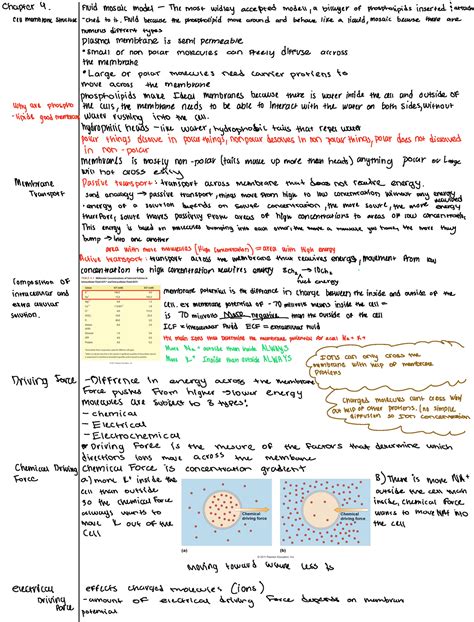 Chapter 4.
Cell membrane structure
Fluid mosaic model - The most widley accepted modell, a bilayer of phospholipids inserted
Fluid because the phospholipid move around and behave like a liquid, mosaic because there are
numerus different types
Plasma membrane is semi permeable
• Small or non polar molecules can freely diffuse across
the membrane
• Large or polar molecules need carrier protiens to
move across the membrane
Why are phospho
-lipids good membranes
phospholipids make Ideal membranes because there is water inside the cell and outside of
the cells, the membrane needs to be able to interact with the water on both sides, without
water rushing into the cell.
hydrophilic heads - like water, hydrophobic tails that repel water
polar things disolve in polar things, non polar disolves in non polar things, polar does not dissolved
in non-polar
membranes is mostly non-polar (tails make up more than heads) anything polar or Large
will not cross easily
Membrane
Transport
Passive transport: transport across membrane that does not require energy.
passive transport, things move from high to low concentration without any energy required
- energy of a solution depends on solute concentration, the more solute, the more energy
therfore, solute moves passivly from areas of high concentrations to areas of low concentration.
This energy is based on molecules bumping into each other, the more molecules you have, the more they
bump → into one another
area with more molecules (High concentration) = area with High energy
Active transport: transport across the membrane that requires energy, movement from low
concentration to high concentration requires energy
Composition of
intracellular and
extra cellular
solution.
membrane potential is the difference in charge between the inside and outside of the
cell. ex membrane potential of -70 milivolts means inside the cell
is 70 milivolts More negative than the outside of the cell
ICF = intracellular fluid ECF = extracellular fluid
The main ions that determine the membrane potential for a cell Na+ K+
More Na+ outside than inside ALWAYS
More K+ inside than outside ALWAYS
Ions can only cross the
membrane with help of membrane
protiens
Charged molecules cant cross w/o
the help of other protiens. (no simple
diffusion) so Ion concentration
Driving Force
- Diffrence in energy across the membrane
Force pushes From higher → lower energy
molecules are subject to 3 types:
- chemical
- Electrical
- Electrochemical
• Driving Force is the mesure of the factors that determine which
directions ions move across the membrane
Chemical Driving
Force
Chemical Force is concentration gradient
a) more K+ inside the
cell than outside
so the chemical Force
always wants to
move K out of the
Cell
Chemical
driving force
(a)
Chemical
driving force
(b)
© 2011 Pearson Education, Inc.
B) There is more Na+
outside the cell than
inside, chemical Force
wants to move Na+ into
the cell
moving toward where less is
electrical
Driving
Force
effects charged molecules (ions)
- amount of electrical driving Force depends on membran
potential